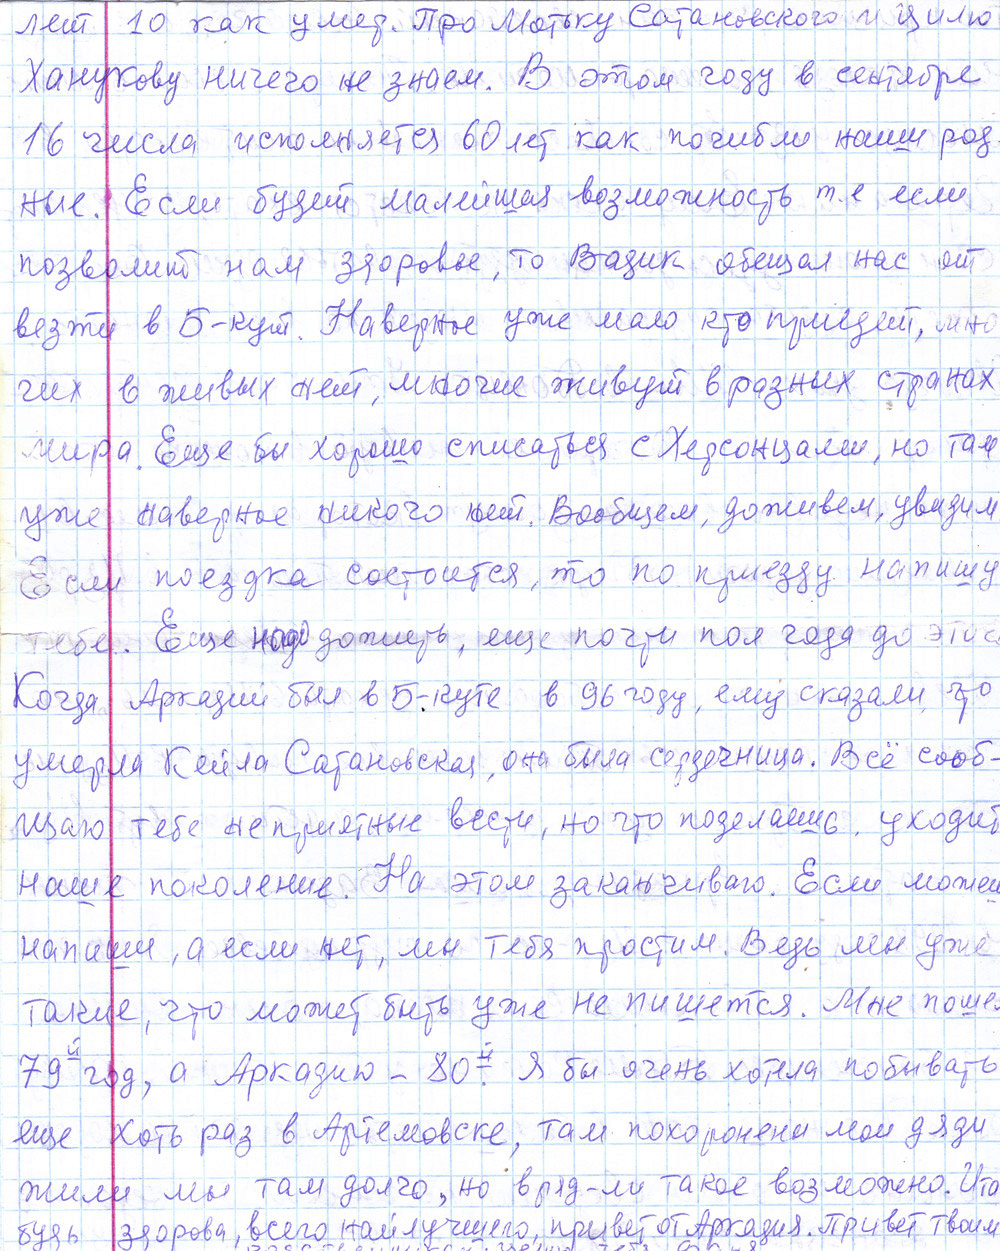 лет 10 как умер. Про Мотьку Сатановского и Цилю
Ханукову ничего не знаем. В этом году в сентябре
16 числа исполняется 60 лет как погибли наши род-
ные. Если будет малейшая возможность т.е если
позволит нам здоровье, то Вадик обещал нас от
везти в 5-кут. Наверное уже мало кто приедет, мно
гих в живых нет, многие живут в разных странах
мира. Еще бы хорошо списаться с Херсонцами, но там
уже наверное никого нет. Вообщем, доживем, увидим
Если поездка состоится, то по приезду напишу
тебе. Еще надо дожить, еще почти пол года до этого
Когда Аркадий был в 5-куте в 96 году, ему сказали, что
умерла Кейла Сатановская, она была сердечница. Всё сооб-
щаю тебе неприятные вести, но что поделаешь, уходит
наше поколение. На этом заканчиваю. Если можешь
напиши, а если нет, мы тебя простим. Ведь мы уже
такие, что может быть уже не пишется. Мне пошел
79й год, а Аркадию – 80й. Я бы очень хотела побывать
еще хоть раз в Артемовске, там похоронены мои дяди
жили мы там долго, но вряд-ли такое возможно. Ита
будь здорова, всего наилучшего, привет от Аркадия. Привет твоим